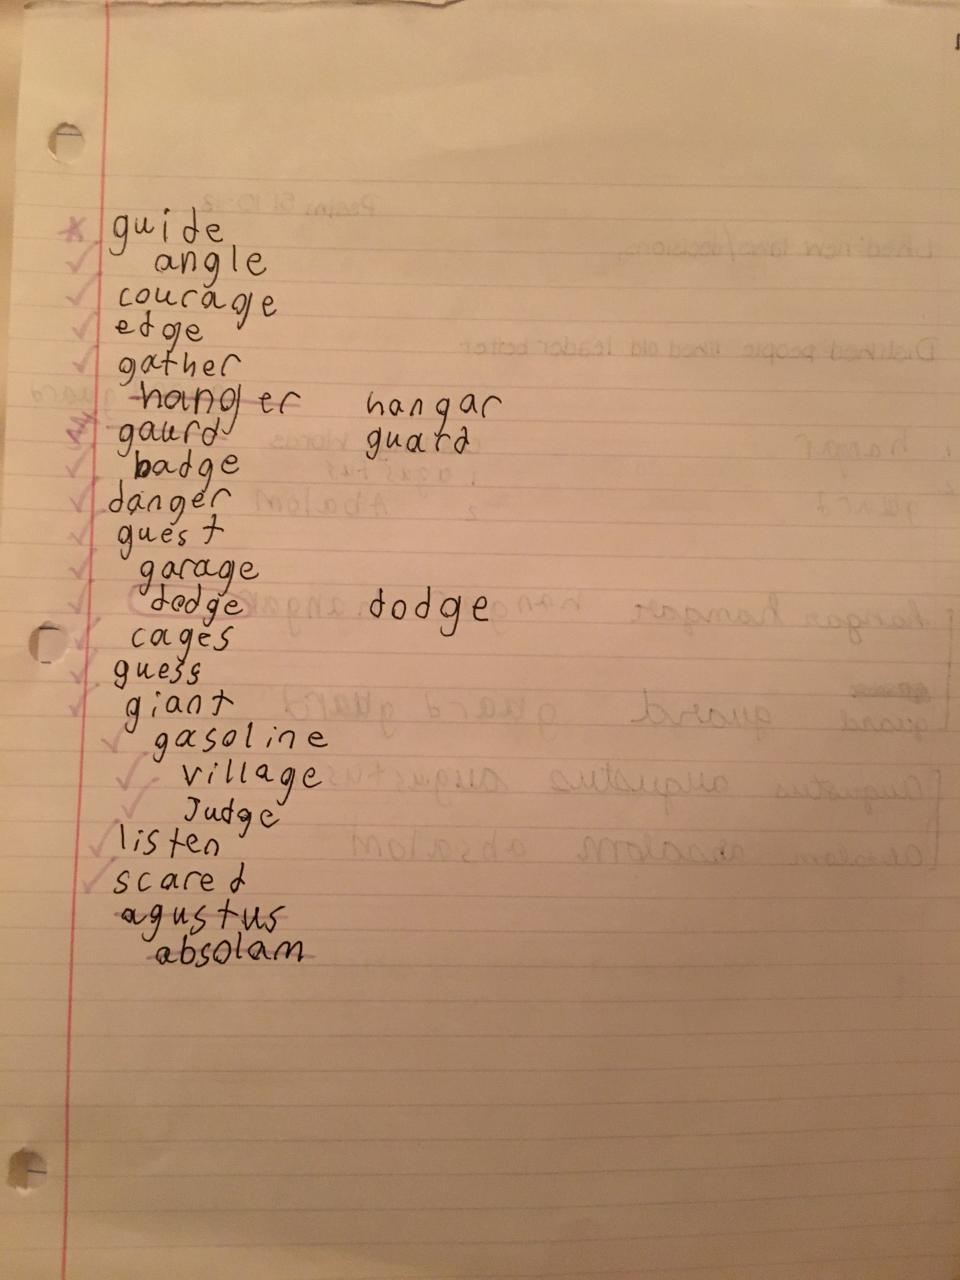 guide
angle
courage
edge
gather
hanger hangar
gaurd guard
badge
danger
guest
garage
dodge dodge
cages
guess
giant
gasoline
village
Judge
listen
scared
agustus
absolam